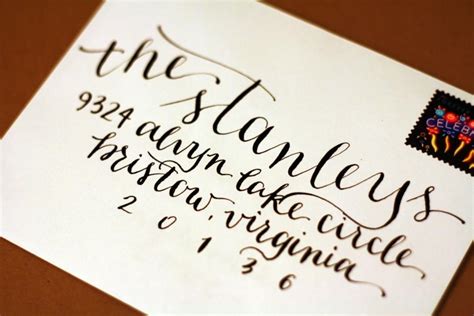 the stanleys
9324 alvyn lake circle
bristow, virginia
20136
CELEB